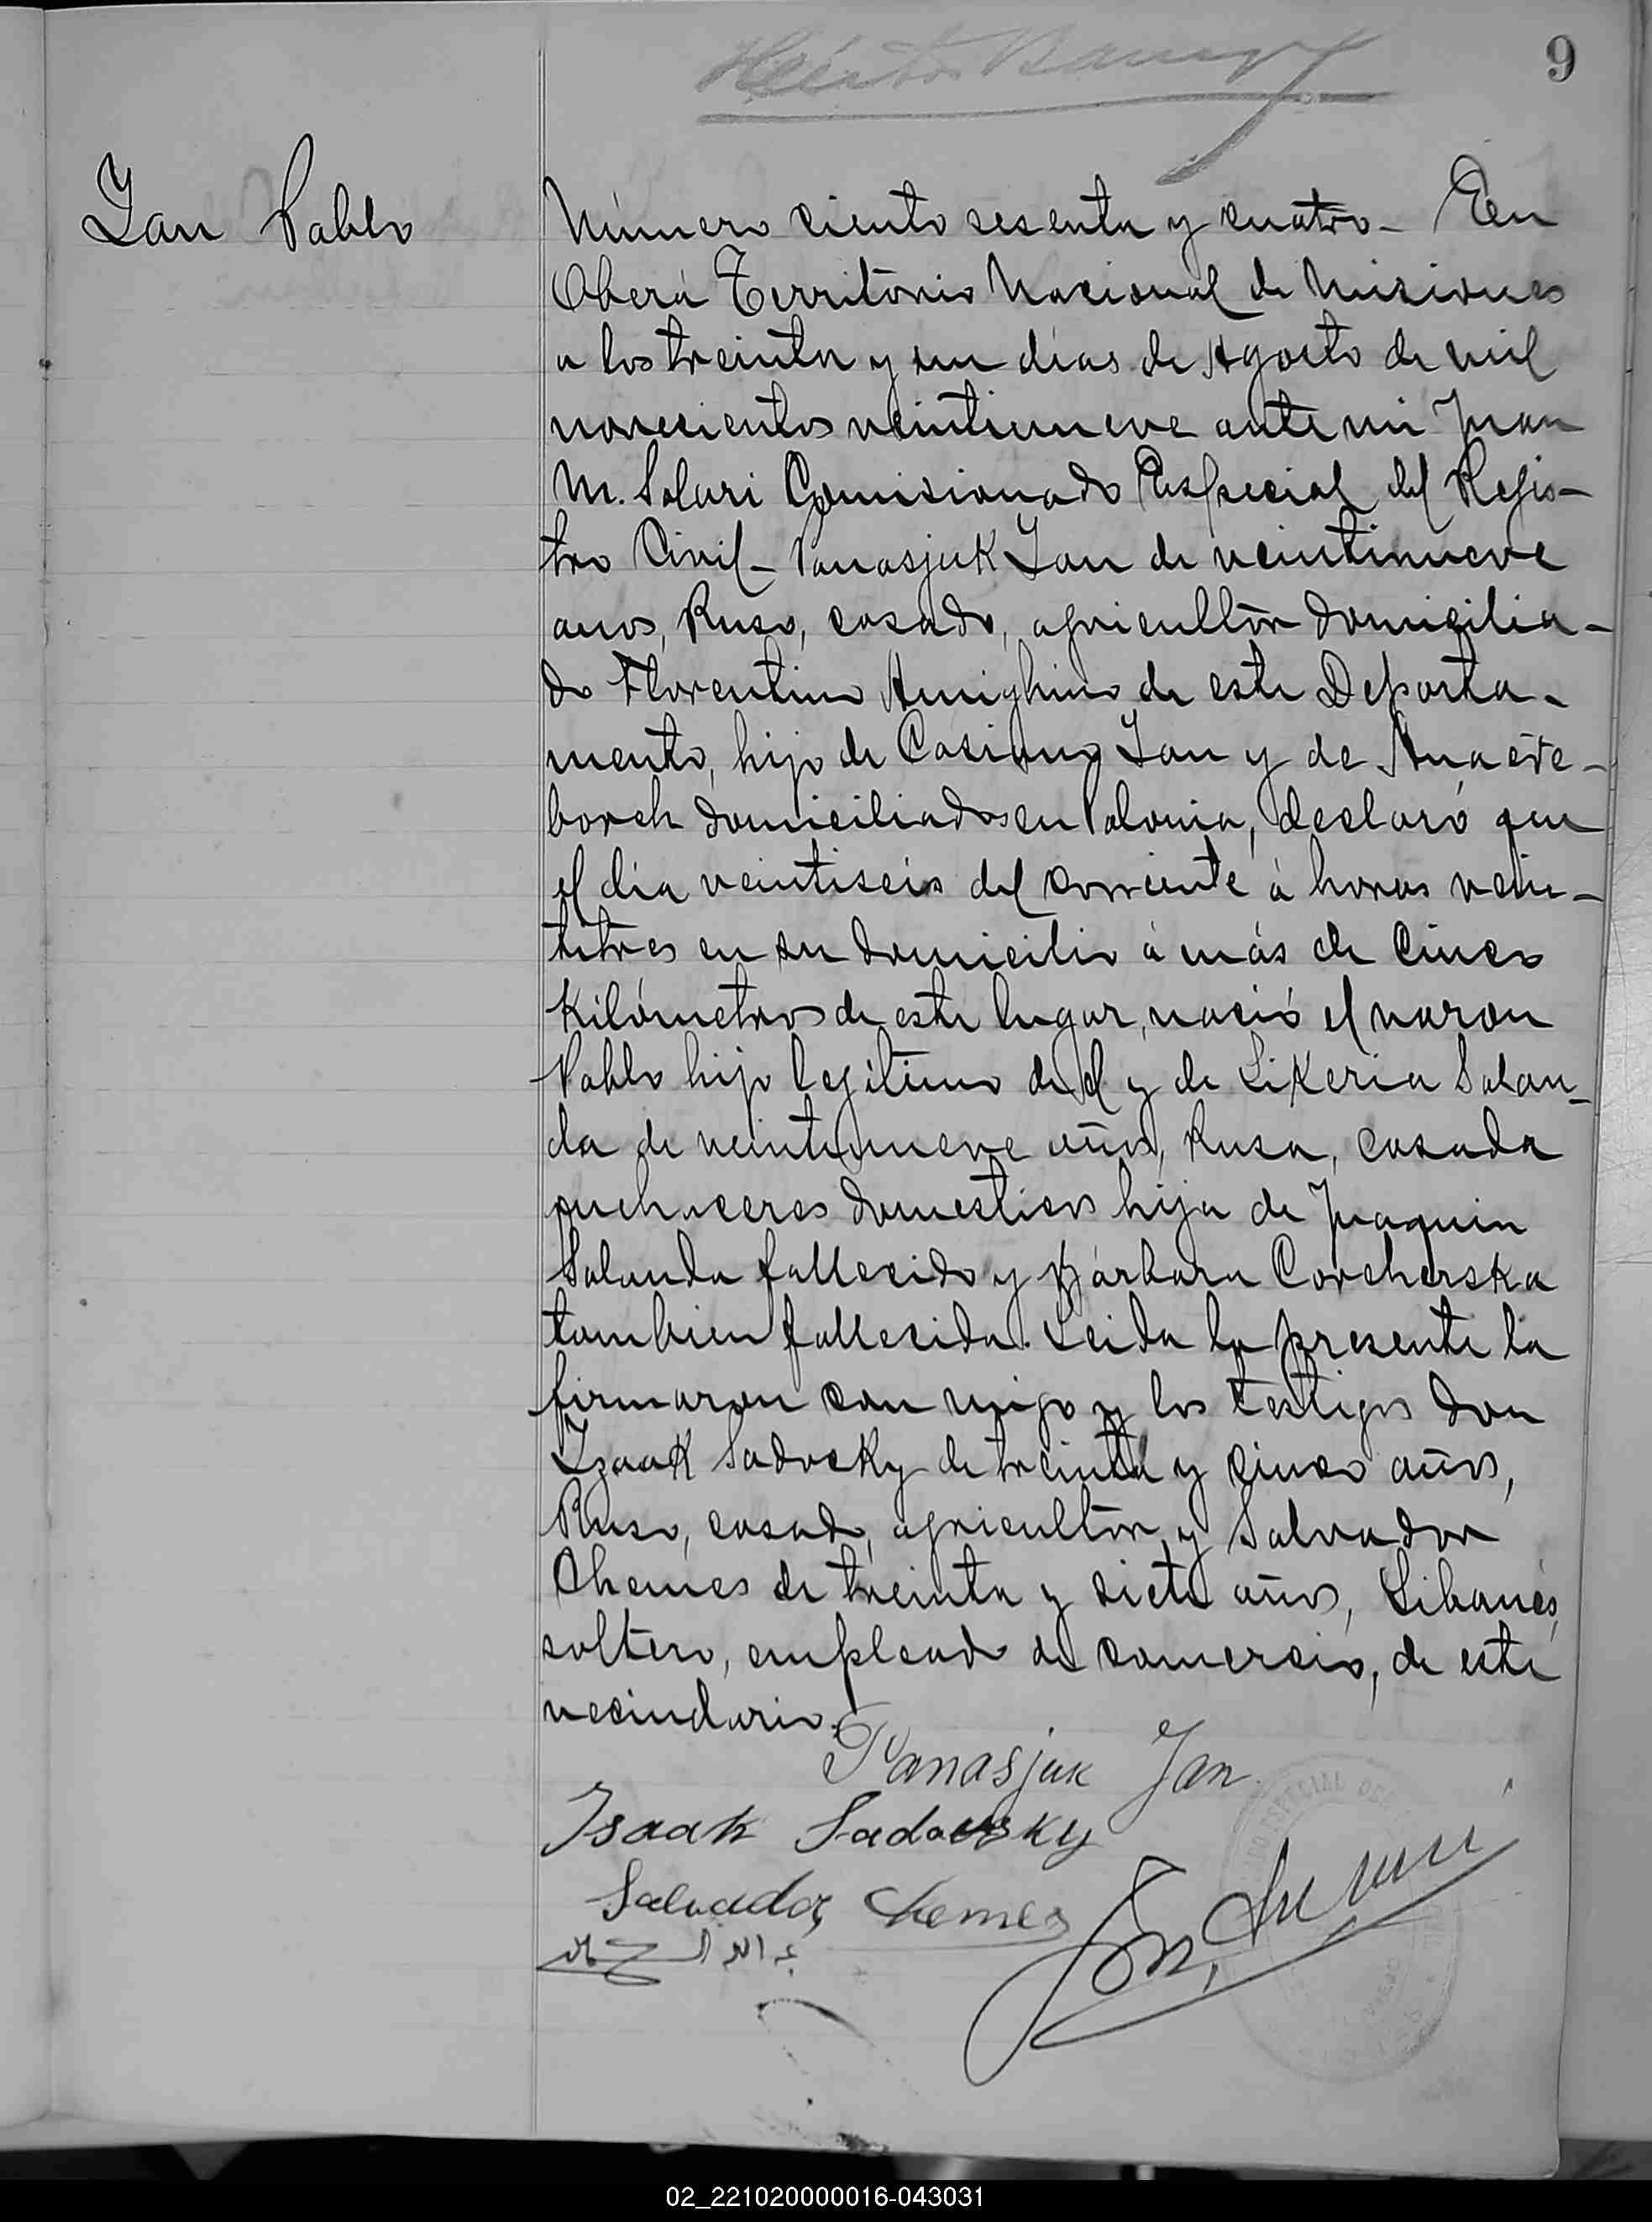 9
Jan Pablo
Número ciento sesenta y cuatro - En
Oberá Territorio Nacional de Misiones
a los treinta y un días de Agosto de mil
novecientos veintinueve ante mi Juan
M. Solari Comisionado Especial del Regis-
tro Civil - Panasjuk Jan de veintinueve
anos, Ruso, casado, agricultor domicilia-
do Florentino Amighino de este Departa-
mento, hijo de Casiano Jan y de Ana
domiciliados en Polonia, declaró que
el día veintiseis del corriente á horas vein-
titres en su domicilio á más de cinco
Kilómetros de este lugar, nació el varon
Pablo hijo legítimo de el y de Likeria Salan-
da de veintinueve años, Rusa, casada
quehaceres domesticos hija de Juaquin
Salanda fallecido y Bárbara Corcherska
tambien fallecida. Leida la presente la
firmaron con migo y los testigos don
Izaak Sadosky de treinta y cinco años,
Ruso, casado, agricultor y Salvador
Chemes de treinta y siete años, Libanés,
soltero, empleado de comercio, de este
vecindario.
Panasjuk Jan
Isaak Sadowsky
Salvador Chemes
02_221020000016-043031